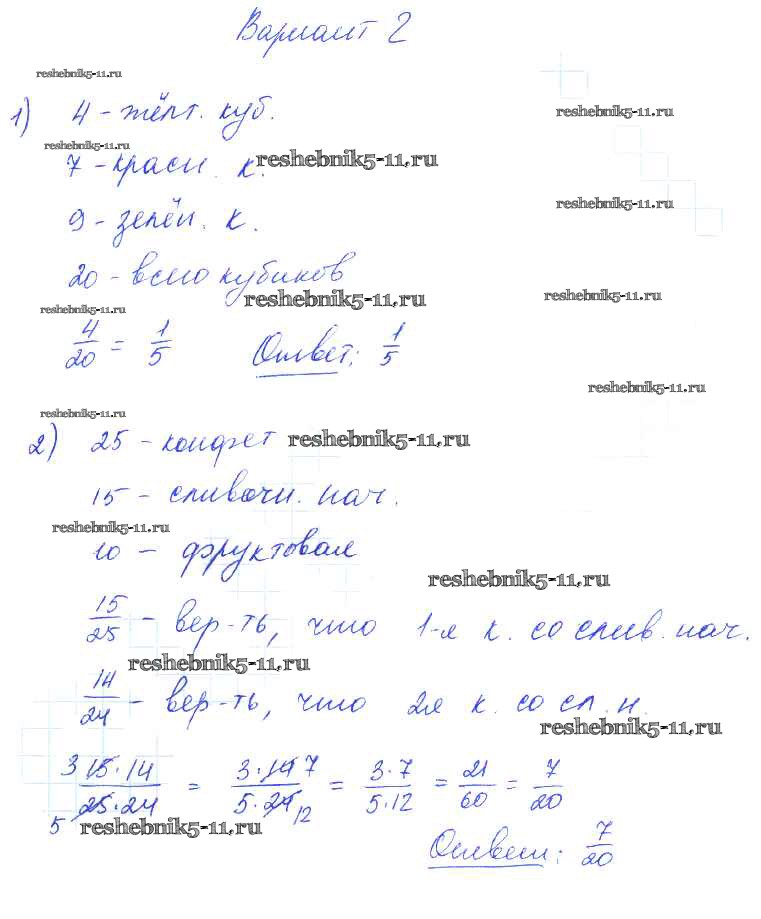 Вариант 2
reshebnik5-11.ru
1) 4 - жёлт. куб.
reshebnik5-11.ru
reshebnik5-11.ru
7 - красн. к.
reshebnik5-11.ru
9 - зелён. к.
reshebnik5-11.ru
20 - всего кубиков
reshebnik5-11.ru
reshebnik5-11.ru
reshebnik5-11.ru
4/20 = 1/5 Ответ: 1/5
reshebnik5-11.ru
reshebnik5-11.ru
2) 25 - конфет
reshebnik5-11.ru
15 - сливочн. нач.
reshebnik5-11.ru
10 - фруктовая
reshebnik5-11.ru
15/25 - вер-ть, что 1-я к. со слив. нач.
reshebnik5-11.ru
14/24 - вер-ть, что 2я к. со сл. н.
reshebnik5-11.ru
3 15·14 / 5 25·24 = 3·14 7 / 5·24 12 = 3·7/5·12 = 21/60 = 7/20
reshebnik5-11.ru
Ответ: 7/20